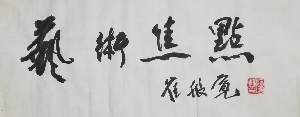 藝術焦點
崔振寬